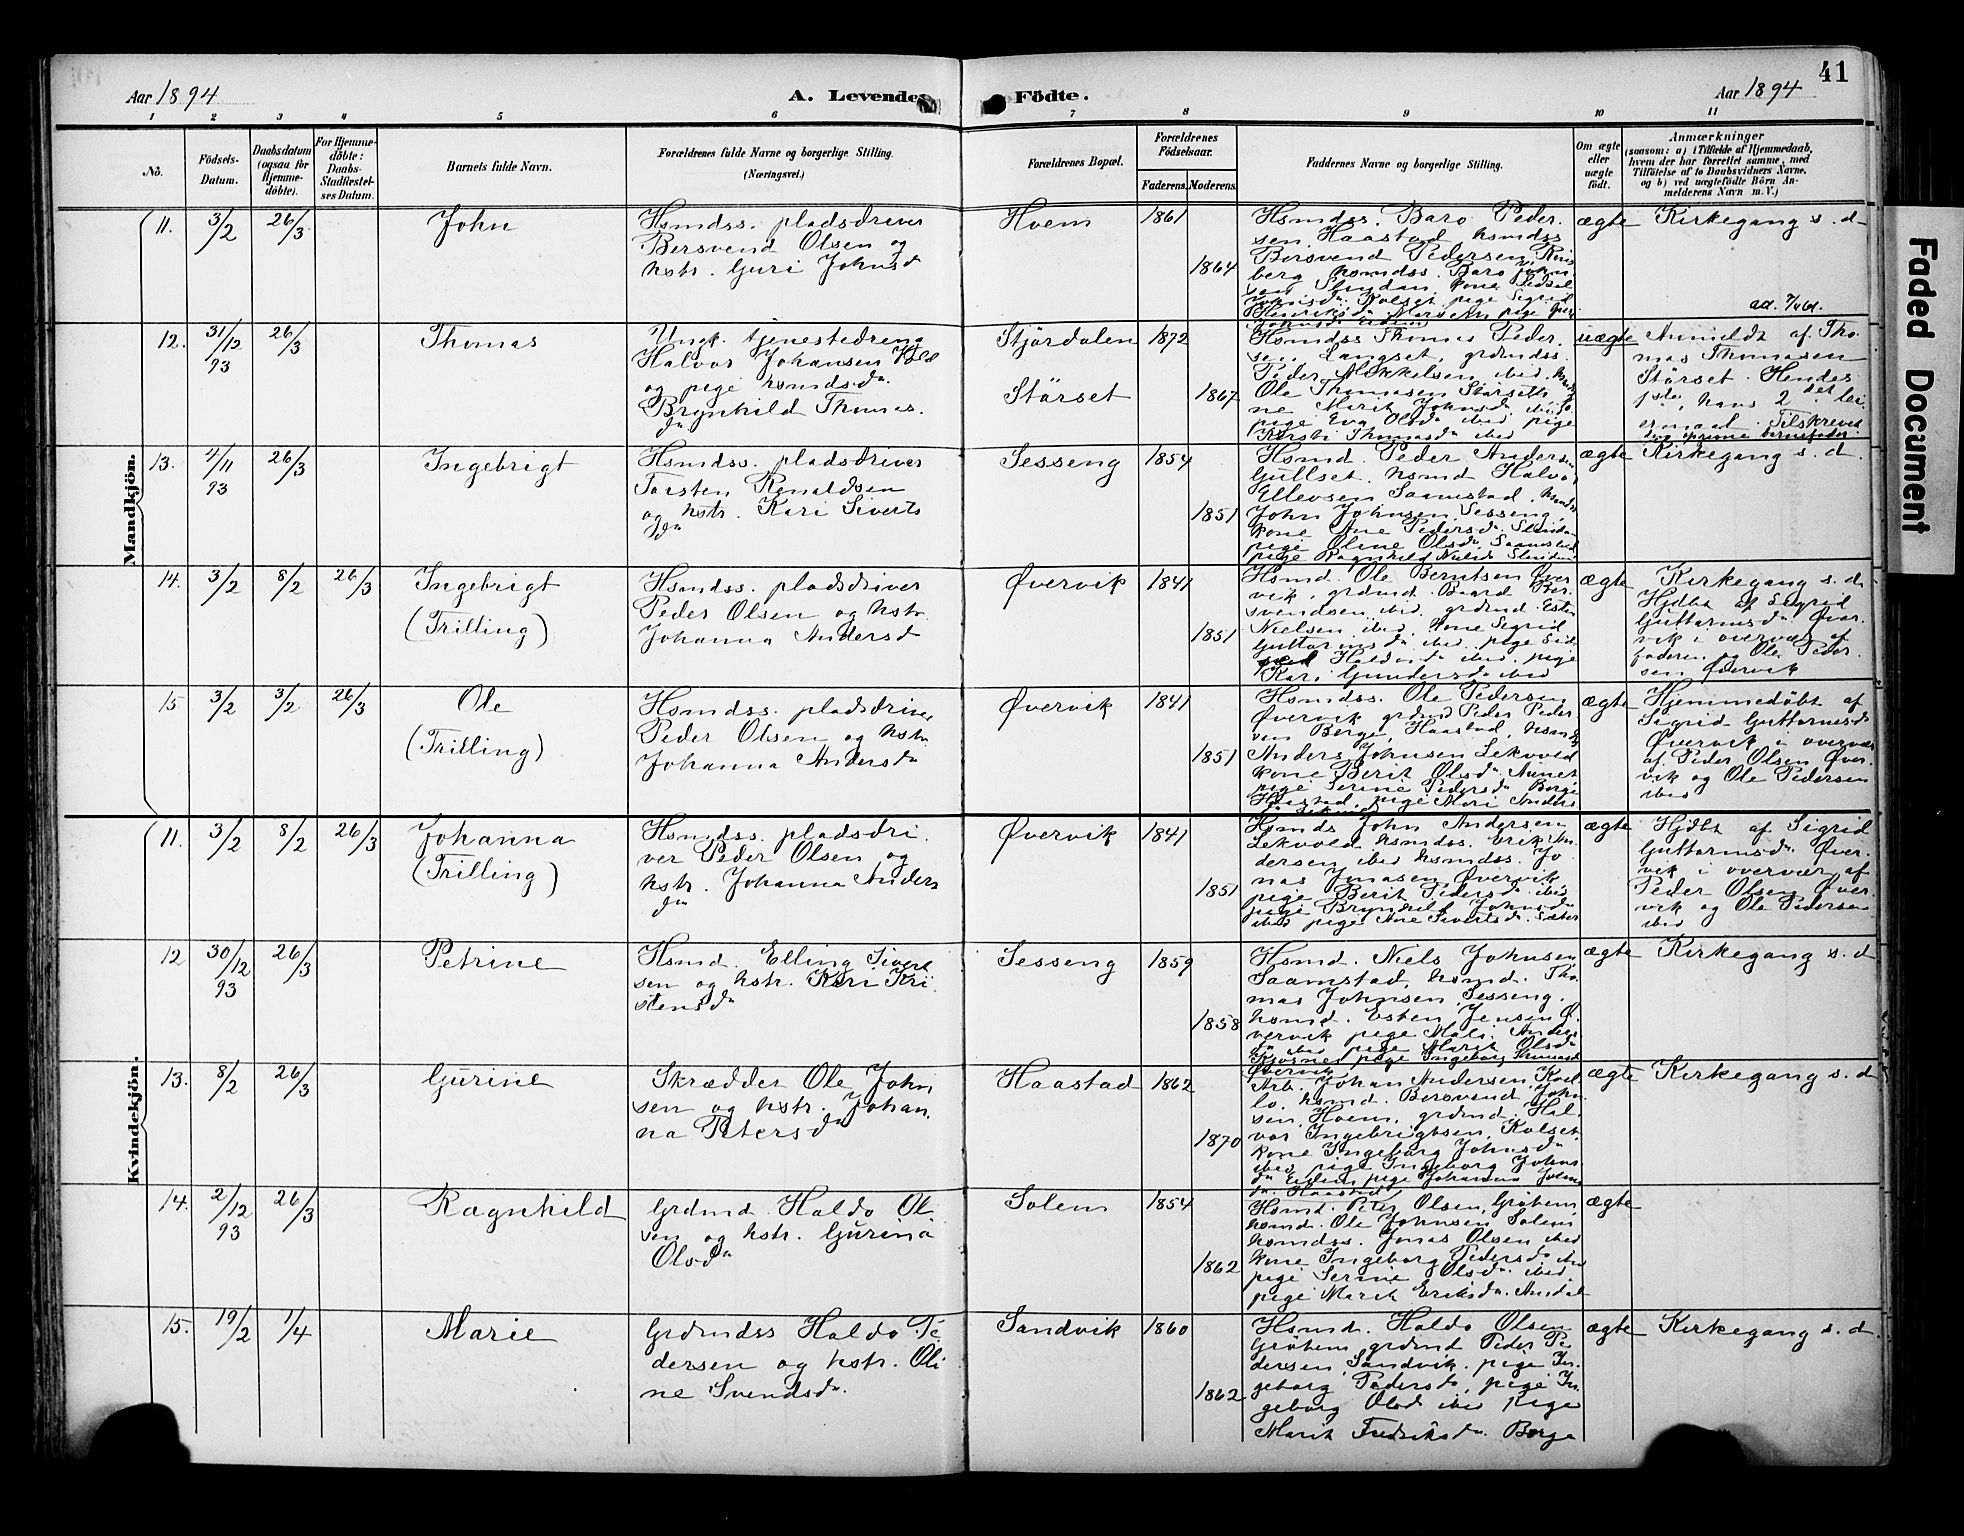 41
Aar 1894
A. Levende
Födte.
Aar 1894
1 2 3 4 5 6 7 8 9 10 11
No.
Födsels-
Datum.
Daabsdatum
(ogsaa for
Hjemme-
döbte).
For Hjemme-
döbte:
Daabs-
Stadfestel-
ses Datum.
Barnets fulde Navn.
Forældrenes fulde Navne og borgerlige Stilling.
(Næringsvei.)
Forældrenes Bopæl.
Forældrenes
Födselsaar.
Faderens.
Moderens.
Faddernes Navne og borgerlige Stilling.
Om ægte
eller
uægte
födt.
Anmærkninger
(saasom: a) i Tilfælde af Hjemmedaab,
hvem der har forrettet samme, med
Tilföielse af to Daabsvidners Navne,
og b) ved uægtefödte Börn An-
melderens Navn m. V.)
Mandkjön.
11.
3/2
26/3
John
Hsmdss. pladsdriver
Bersvend Olsen og
hstr. Guri Johnsd
Hvem
1861
1864
Hsmdss. Baro Peder-
sen Haastad hsmdss
Bersvend Pedersen
ægte
Kirkegang s. d.
12.
31/12
93
26/3
Thomas
Ungk. tjenestedreng
Halvor Johansen
og pige hsmdsda
Brynhild Thomas.
da
Stjördalen
Störset
1872
1867
Hsmdss Thomas Peder-
sen Langset, grdmdss.
Peder Mikkelsen ibid.
Ole Thomasen Störset
ne Marit Johnsda
pige Eva Olsd ibid pige
Kirsti Thomasda ibid
uægte
Anmeldt af Tho
mas Thomasen
Störset. Hendes
1ste, hans 2det lei-
ermaal. Tilskreven
13.
4/11
93
26/3
Ingebrigt
Hsmdss. pladsdriver
Torsten Renaldsen
og hstr. Kari Siverts
da
Sesseng
1854
1851
Hsmd. Peder Anders
Gullset. hsmd Halvor
Ellevsen Saamstad.
John Johnsen Sesseng,
kone Ane Pedersda
pige Oline Olsda Saamstad
ægte
Kirkegang s. d.
14.
3/2
8/2
26/3
Ingebrigt
(Trilling)
Hsmdss. pladsdriver
Peder Olsen og hstr.
Johanna Andersd
Øvervik
1841
1851
Hsmd. Ole Berntsen Øver
vik, grdmd. Baard Ber
svendsen ibid. grdmd. Esten
Nielsen ibid. kone Sigrid
Guttormsda ibid. pige
Haldosda ibid. pige
Kari Gundersda ibid
ægte
Kirkegang s. d
Hjdbt af Sigrid
Guttormsda Øver-
vik i overvær af
faderen og Ole Peder-
sen Øvervik
15
3/2
3/2
26/3
Ole
(Trilling)
Hsmdss. pladsdriver
Peder Olsen og hstr.
Johanna Andersda
Øvervik
1841
1851
Hsmdss. Ole Pedersen
Øvervik grdmd Peder Peder
sen Berge, Haastad,
Anders Johnsen Lekvold
kone Berit Olsda Aunet
pige Serine Pedersda Berge
Haastad, pige Mari Anders
ægte
Hjemmedøbt af
Sigrid Guttormsda
Øvervik i overvær
af Peder Olsen Øver-
vik og Ole Pedersen
ibid
Kvindekjön.
11.
3/2
8/2
26/3
Johanna
(Trilling)
Hsmdss. pladsdri
ver Peder Olsen og
hstr. Johanna Anders
da
Øvervik
1841
1851
Hsmds John Andersen
Lekvold hsmdss. Erik An
dersen ibid hsmdss. Jo
nas Jonasen Øvervik,
pige Berit Pedersda ibid,
pige Brynhild Johnsda
ibid pige Ane Sivertsda
ægte
Hjdbt af Sigrid
Guttormsda Øver-
vik i overvær af
Peder Olsen Øver
vik og Ole Pedersen
ibid
12
30/12
93
26/3
Petrine
Hsmd. Elling Sivert
sen og hstr. Kari Kri
stensda
Sesseng
1859
1858
Hsmd. Niels Johnsen
Saamstad, hsmd. Tho
mas Johnsen, Sesseng.
hsmd. Esten Jensen Ø.
vervik pige Mali Anders
da ibid pige Marit Olsda
pige Ingeborg
Øvervik
ægte
Kirkegang s. d
13.
8/2
26/3
Gurine
Skrædder Ole John
sen og hstr. Johan
na Petersda
Haastad
1862
1870
Arb. Johan Andersen,
hsmd. Bersvend John
sen, Hvem, grdmd. Hal-
vor Ingebrigtsen, Kolset
kone Ingeborg Johnsda
ibid, pige Ingeborg Johns
da pige Johanna
da Haastad
ægte
Kirkegang s. d
14.
2/12
93
26/3
Ragnhild
Grdmd Haldo Ol
sen og hstr. Gurina
Olsda
Solem
1854
1862
Hsmd. Peter Olsen, Gröhem,
hsmd. Ole Johnsen Solem
hsmdss. Jonas Olsen ibid
kone Ingeborg Pedersda
pige Serine Olsda ibid.
pige Marit Eriksda
ægte
15.
19/2
1/4
Marie
Grdmdss Haldo Pe
dersen og hstr. Oli
ne Svendsda.
Sandvik
1860
1862
Hsmd. Haldo Olsen
Gröhem grdmd Peder Pe
dersen Sandvik. pige In-
geborg Pedersda, pige In
geborg Olsd ibid pige
Marit Fredriksda Berge
ægte
Kirkegang s. d.
Faded Document